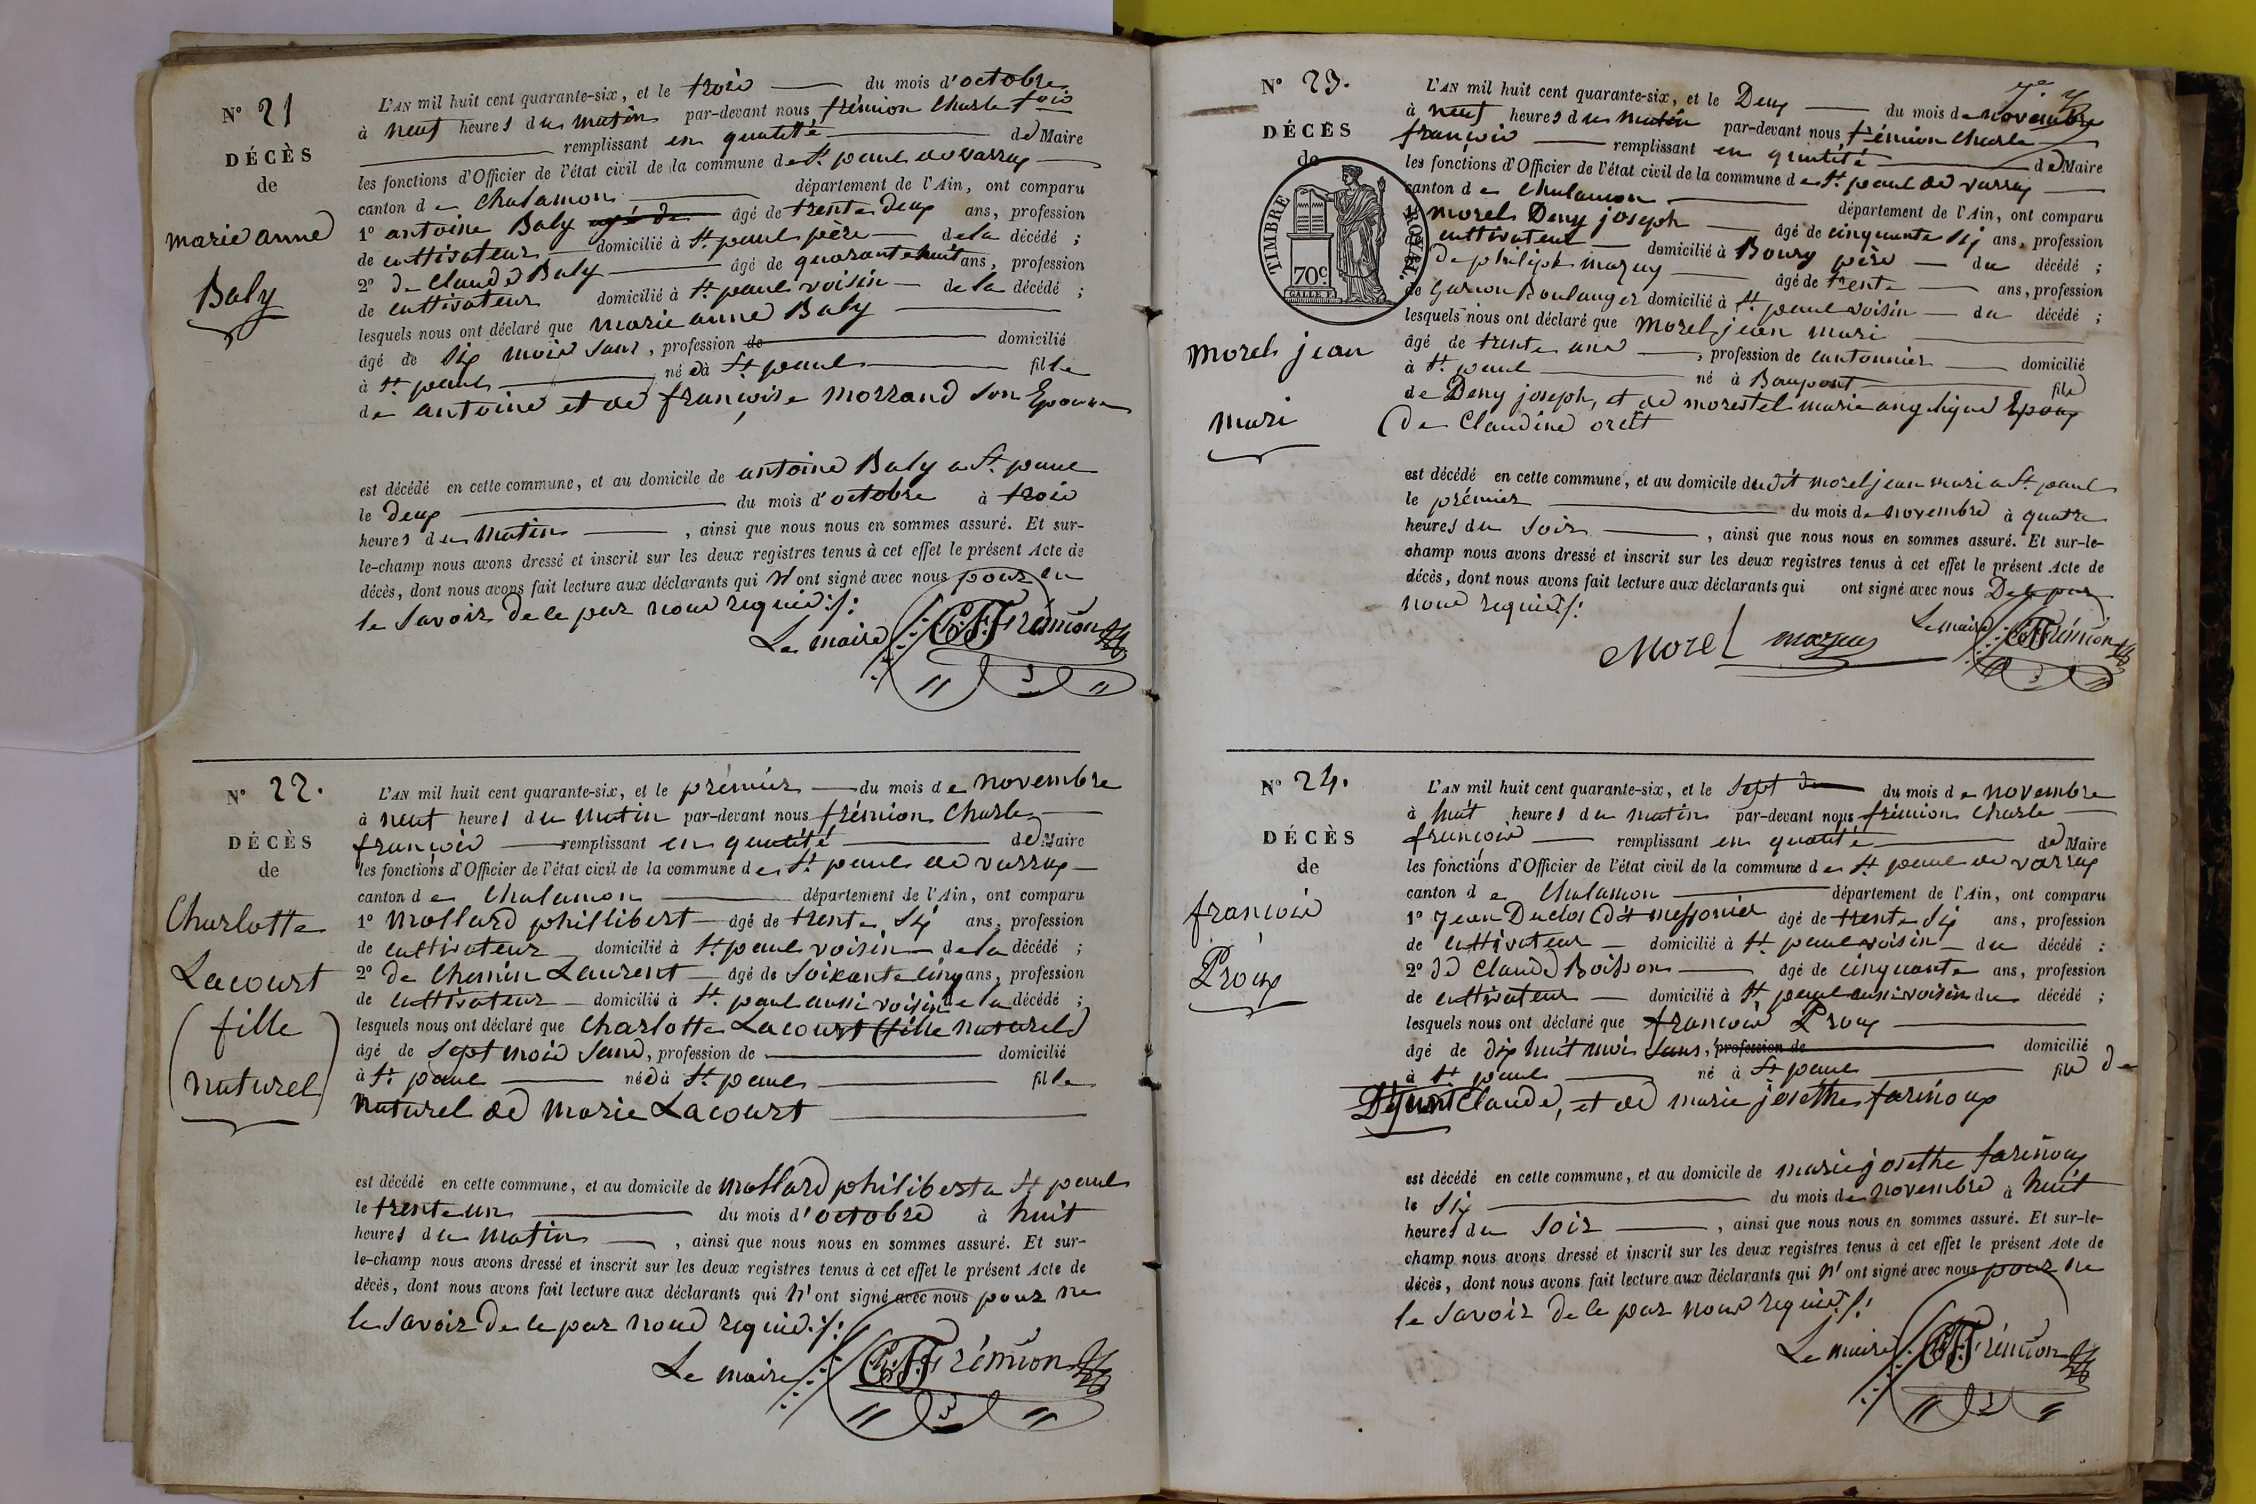 N° 21
DÉCÈS
de
marie anne
Baly
L'AN mil huit cent quarante-six, et le trois du mois d'octobre
à neuf heures du matin par-devant nous frémion Charle
remplissant en qualité de Maire
les fonctions d'Officier de l'état civil de la commune de St paul de varax
canton de Chalamon département de l'Ain, ont comparu
1° antoine Baly agé de âgé de trente deux ans, profession
de cultivateur domicilié à St paul père de la décédé ;
2° de Claude Baly âgé de quarante huit ans, profession
de cultivateur domicilié à St paul voisin de la décédé ;
lesquels nous ont déclaré que marie anne Baly
âgé de six mois sans, profession de domicilié
à St paul né à St paul fille
de antoine et de françoise morrand son Epouse
est décédé en cette commune, et au domicile de antoine Baly a St paul
le deux du mois d'octobre à trois
heures du matin, ainsi que nous nous en sommes assuré. Et sur-
le-champ nous avons dressé et inscrit sur les deux registres tenus à cet effet le présent Acte de
décès, dont nous avons fait lecture aux déclarants qui n'ont signé avec nous pour ne
le savoir de ce par nous requis ./:
Le maire Frémion
N° 22.
DÉCÈS
de
Charlotte
Lacourt
(fille
naturel)
L'AN mil huit cent quarante-six, et le prémiér du mois de novembre
à neuf heures du matin par-devant nous frémion Charle
françois remplissant en qualité de Maire
les fonctions d'Officier de l'état civil de la commune de St paul de varax
canton de Chalamon département de l'Ain, ont comparu
1° Mollard phillibert âgé de trente six ans, profession
de cultivateur domicilié à St paul voisin de la décédé ;
2° de Chemin Laurent âgé de soixante cinq ans, profession
de cultivateur domicilié à St paul aussi voisin de la décédé ;
lesquels nous ont déclaré que Charlotte Lacourt (fille naturel)
âgé de sept mois sans, profession de domicilié
à St paul né à St paul fille
naturel de Marie Lacourt
est décédé en cette commune, et au domicile de Mollard philibert a St paul
le trente un du mois d'octobre à huit
heures du matin, ainsi que nous nous en sommes assuré. Et sur-
le-champ nous avons dressé et inscrit sur les deux registres tenus à cet effet le présent Acte de
décès, dont nous avons fait lecture aux déclarants qui n'ont signé avec nous pour ne
le savoir de ce par nous requis ./:
Le maire Frémion
N° 23.
DÉCÈS
de
TIMBRE ROYAL
70c
morel jean
mari
L'AN mil huit cent quarante-six, et le Deux du mois de novembre
à neuf heures du matin par-devant nous frémion Charle
françois remplissant en qualité de Maire
les fonctions d'Officier de l'état civil de la commune de St paul de varax
canton de Chalamon département de l'Ain, ont comparu
1° morel Deny joseph âgé de cinquante six ans, profession
de cultivateur domicilié à Bourg père du décédé ;
2° De philiph mazuy âgé de trente ans, profession
de Garcon Boulanger domicilié à St paul voisin du décédé ;
lesquels nous ont déclaré que morel jean mari
âgé de trente ans, profession de cantonnier domicilié
à St paul né à Baupont fils
de Deny joseph, et de morestel marie angelique Epoux
(de Claudine
est décédé en cette commune, et au domicile dudit morel jean mari a St paul
le prémier du mois de novembre à quatre
heures du soir, ainsi que nous nous en sommes assuré. Et sur-le-
champ nous avons dressé et inscrit sur les deux registres tenus à cet effet le présent Acte de
décès, dont nous avons fait lecture aux déclarants qui ont signé avec nous De ce par
nous requis ./:
Morel mazuy Le maire Frémion
N° 24.
DÉCÈS
de
françois
Proux
L'AN mil huit cent quarante-six, et le sept du du mois de novembre
à huit heures du matin par-devant nous frémion Charle
françois remplissant en qualité de Maire
les fonctions d'Officier de l'état civil de la commune de St paul de varax
canton de Chalamon département de l'Ain, ont comparu
1° Jean Duclos (dit messonier âgé de trente six ans, profession
de cultivateur domicilié à St paul voisin du décédé ;
2° de Claude Boisson âgé de cinquante ans, profession
de cultivateur domicilié à St paul aussi voisin du décédé ;
lesquels nous ont déclaré que françois Proux
âgé de dix huit mois sans, profession de domicilié
à St paul né à St paul fils de
Défunt Claude, et de marie josethe farinoux
est décédé en cette commune, et au domicile de marie josethe farinoux
le six du mois de novembre à huit
heures du soir, ainsi que nous nous en sommes assuré. Et sur-le-
champ nous avons dressé et inscrit sur les deux registres tenus à cet effet le présent Acte de
décès, dont nous avons fait lecture aux déclarants qui n'ont signé avec nous pour ne
le savoir de ce par nous requis ./:
Le maire Frémion